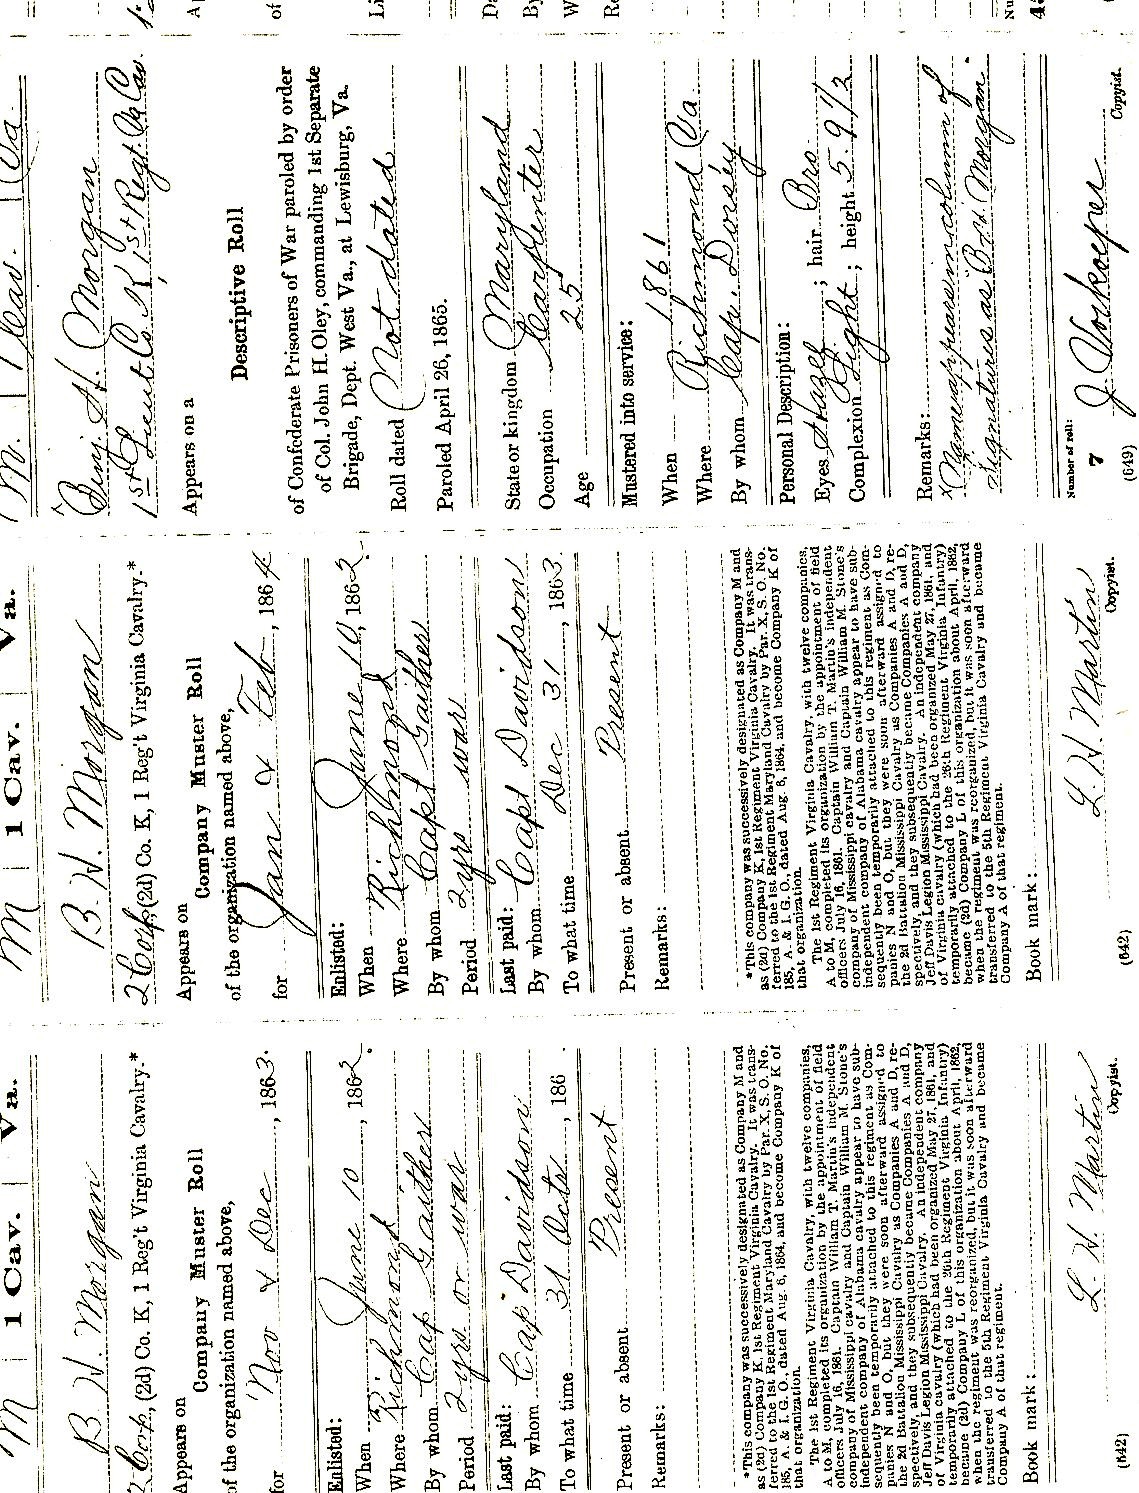 M | 1 Cav. | Va.
B W. Morgan
2 Corp, (2d) Co. K, 1 Reg't Virginia Cavalry.*
Appears on
Company Muster Roll
of the organization named above,
for Nov & Dec, 1863.
Enlisted:
When June 10, 1862.
Where Richmond
By whom Cap Gaither
Period 2 yrs or war
Last paid:
By whom Cap Davidson
To what time 31 Octr, 186
Present or absent Present
Remarks:
*This company was successively designated as Company M and
as (2d) Company K, 1st Regiment Virginia Cavalry. It was trans-
ferred to the 1st Regiment Maryland Cavalry by Par. X, S. O. No.
185, A. & I. G. O., dated Aug. 6, 1864, and became Company K of
that organization.
The 1st Regiment Virginia Cavalry, with twelve companies,
A to M, completed its organization by the appointment of field
officers July 16, 1861. Captain William T. Martin's independent
company of Mississippi cavalry and Captain William M. Stone's
independent company of Alabama cavalry appear to have sub-
sequently been temporarily attached to this regiment as Com-
panies N and O, but they were soon afterward assigned to
the 2d Battalion Mississippi Cavalry as Companies A and D, re-
spectively, and they subsequently became Companies A and D,
Jeff Davis Legion Mississippi Cavalry. An independent company
of Virginia cavalry (which had been organized May 27, 1861, and
temporarily attached to the 26th Regiment Virginia Infantry)
became (2d) Company L of this organization about April, 1862,
when the regiment was reorganized, but it was soon afterward
transferred to the 5th Regiment Virginia Cavalry and became
Company A of that regiment.
Book mark:
L. W. Martin
(642) Copyist.
M | 1 Cav. | Va.
B. W. Morgan
2 Corp, (2d) Co. K, 1 Reg't Virginia Cavalry.*
Appears on
Company Muster Roll
of the organization named above,
for Jan & Feb, 1864
Enlisted:
When June 10, 1862.
Where Richmond
By whom Capt Gaither
Period 2 yrs war
Last paid:
By whom Capt Davidson
To what time Dec 31, 1863.
Present or absent Present
Remarks:
*This company was successively designated as Company M and
as (2d) Company K, 1st Regiment Virginia Cavalry. It was trans-
ferred to the 1st Regiment Maryland Cavalry by Par. X, S. O. No.
185, A. & I. G. O., dated Aug. 6, 1864, and become Company K of
that organization.
The 1st Regiment Virginia Cavalry, with twelve companies,
A to M, completed its organization by the appointment of field
officers July 16, 1861. Captain William T. Martin's independent
company of Mississippi cavalry and Captain William M. Stone's
independent company of Alabama cavalry appear to have sub-
sequently been temporarily attached to this regiment as Com-
panies N and O, but they were soon afterward assigned to
the 2d Battalion Mississippi Cavalry as Companies A and D, re-
spectively, and they subsequently became Companies A and D,
Jeff Davis Legion Mississippi Cavalry. An independent company
of Virginia cavalry (which had been organized May 27, 1861, and
temporarily attached to the 26th Regiment Virginia Infantry)
became (2d) Company L of this organization about April, 1862,
when the regiment was reorganized, but it was soon afterward
transferred to the 5th Regiment Virginia Cavalry and became
Company A of that regiment.
Book mark:
L. W. Martin
(642) Copyist.
M. | 1 Cav. | Va
Benj. H. Morgan
1st Lieut Co. K 1st Regt. Va Cav
Appears on a
Descriptive Roll
of Confederate Prisoners of War paroled by order
of Col. John H. Oley, commanding 1st Separate
Brigade, Dept. West Va., at Lewisburg, Va.
Roll dated Not dated
Paroled April 26, 1865.
State or kingdom Maryland
Occupation Carpenter
Age 25
Mustered into service:
When 1861
Where Richmond Va.
By whom Cap. Dorsey
Personal Description:
Eyes Hazel; hair Bro
Complexion Light; height 5.9 1/2
Remarks:
x Name appears in column of
signatures as B. W. Morgan.
Number of roll:
7 J Voskoeper
(649) Copyist.